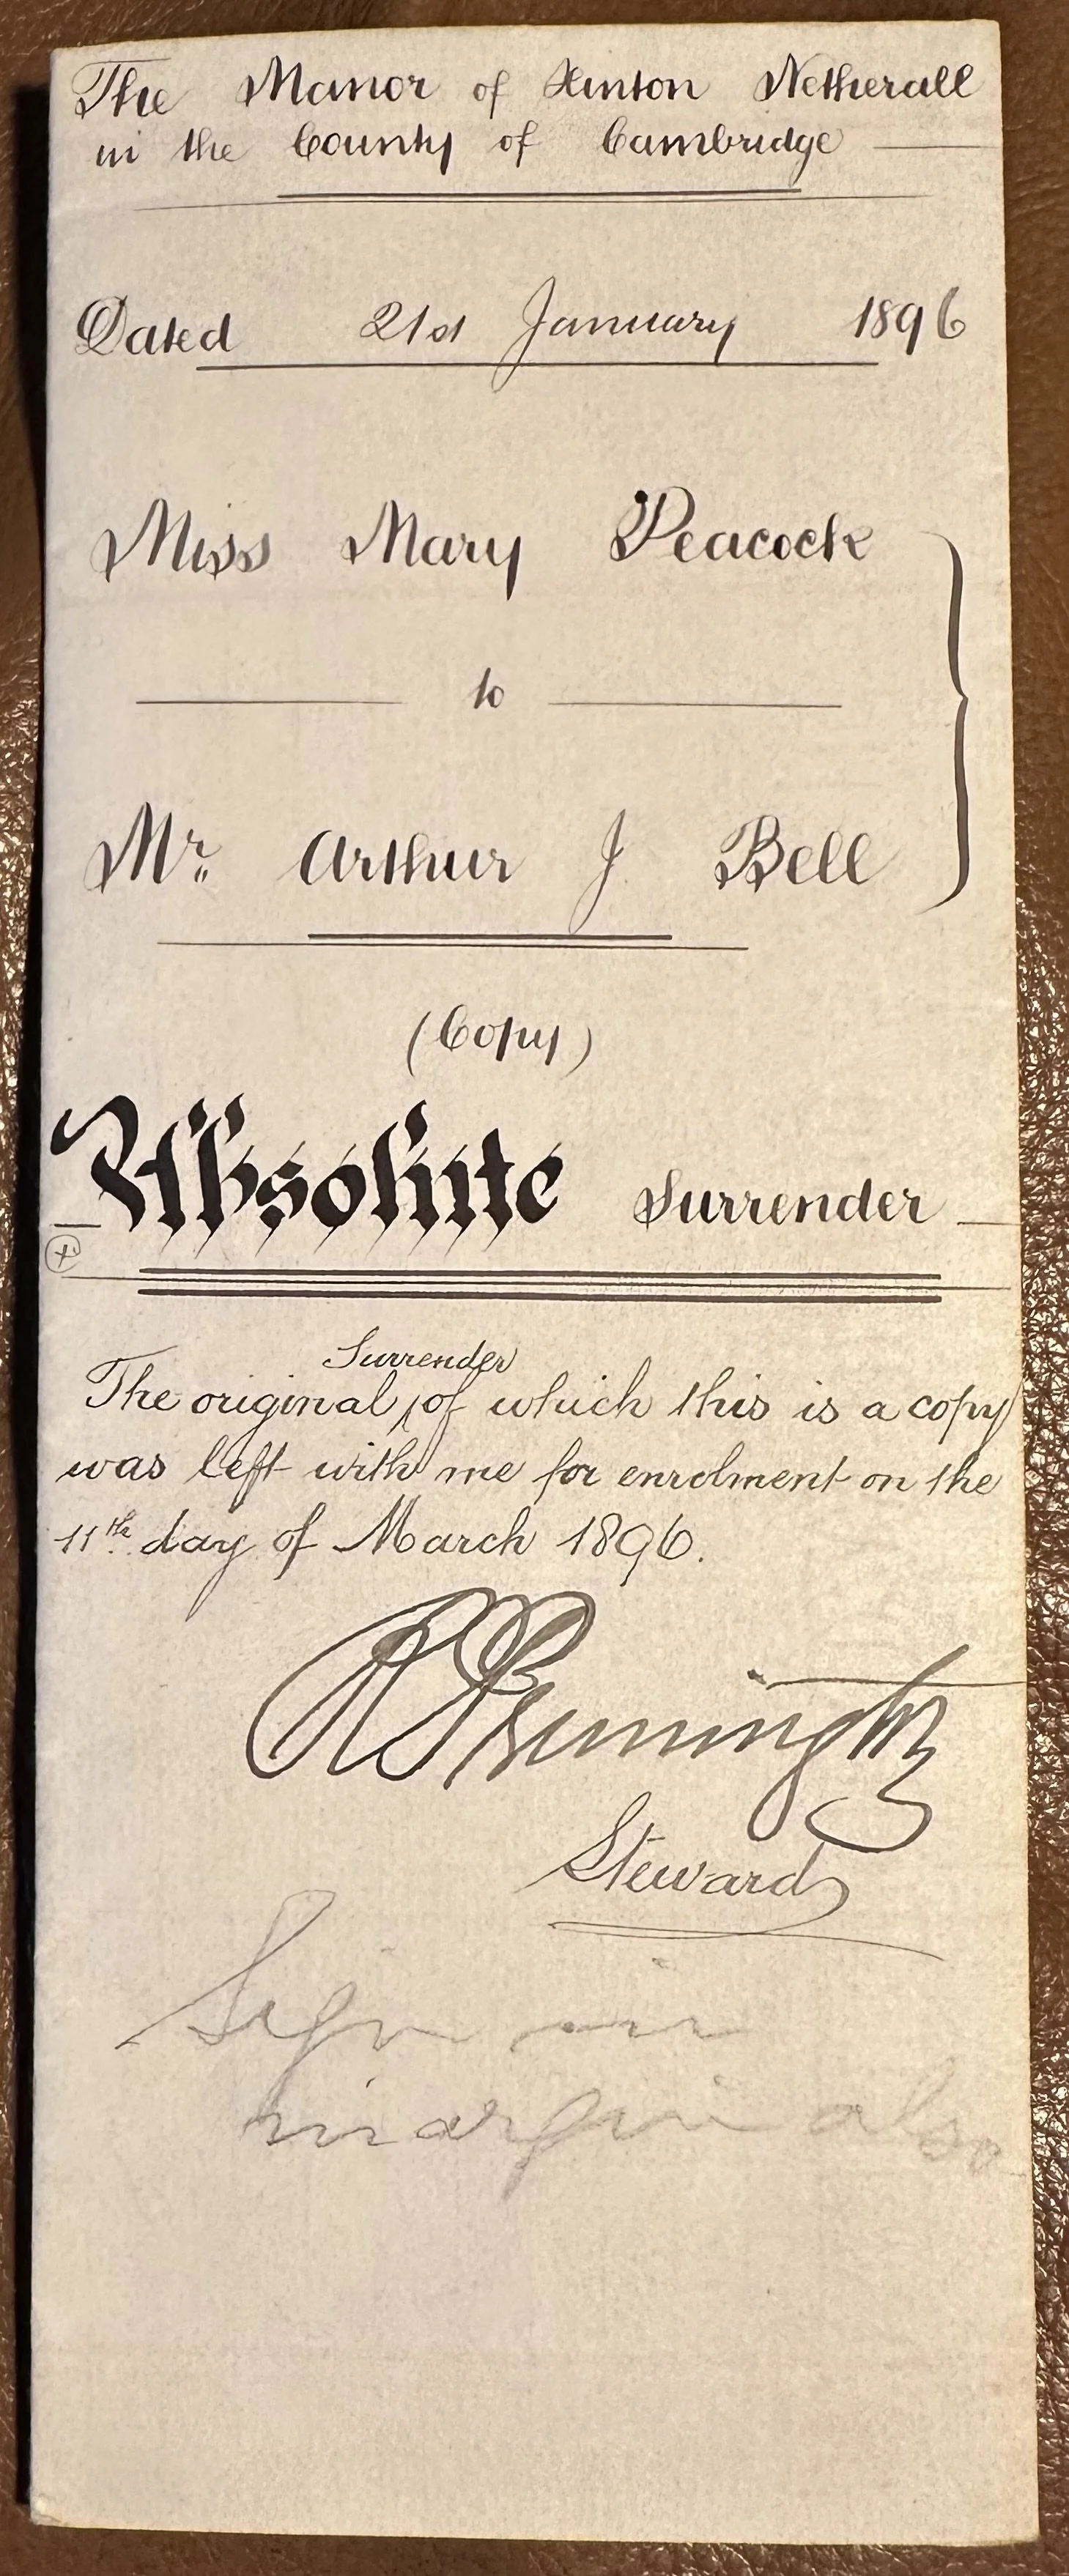 The Manor of Hinton Netherall
in the County of Cambridge
Dated 21st January 1896
Miss Mary Peacock
to
Mr. Arthur J Bell
(Copy)
Absolute Surrender
Surrender
The original of which this is a copy
was left with me for enrolment on the
11th day of March 1896.
Steward
Sign in
margin also